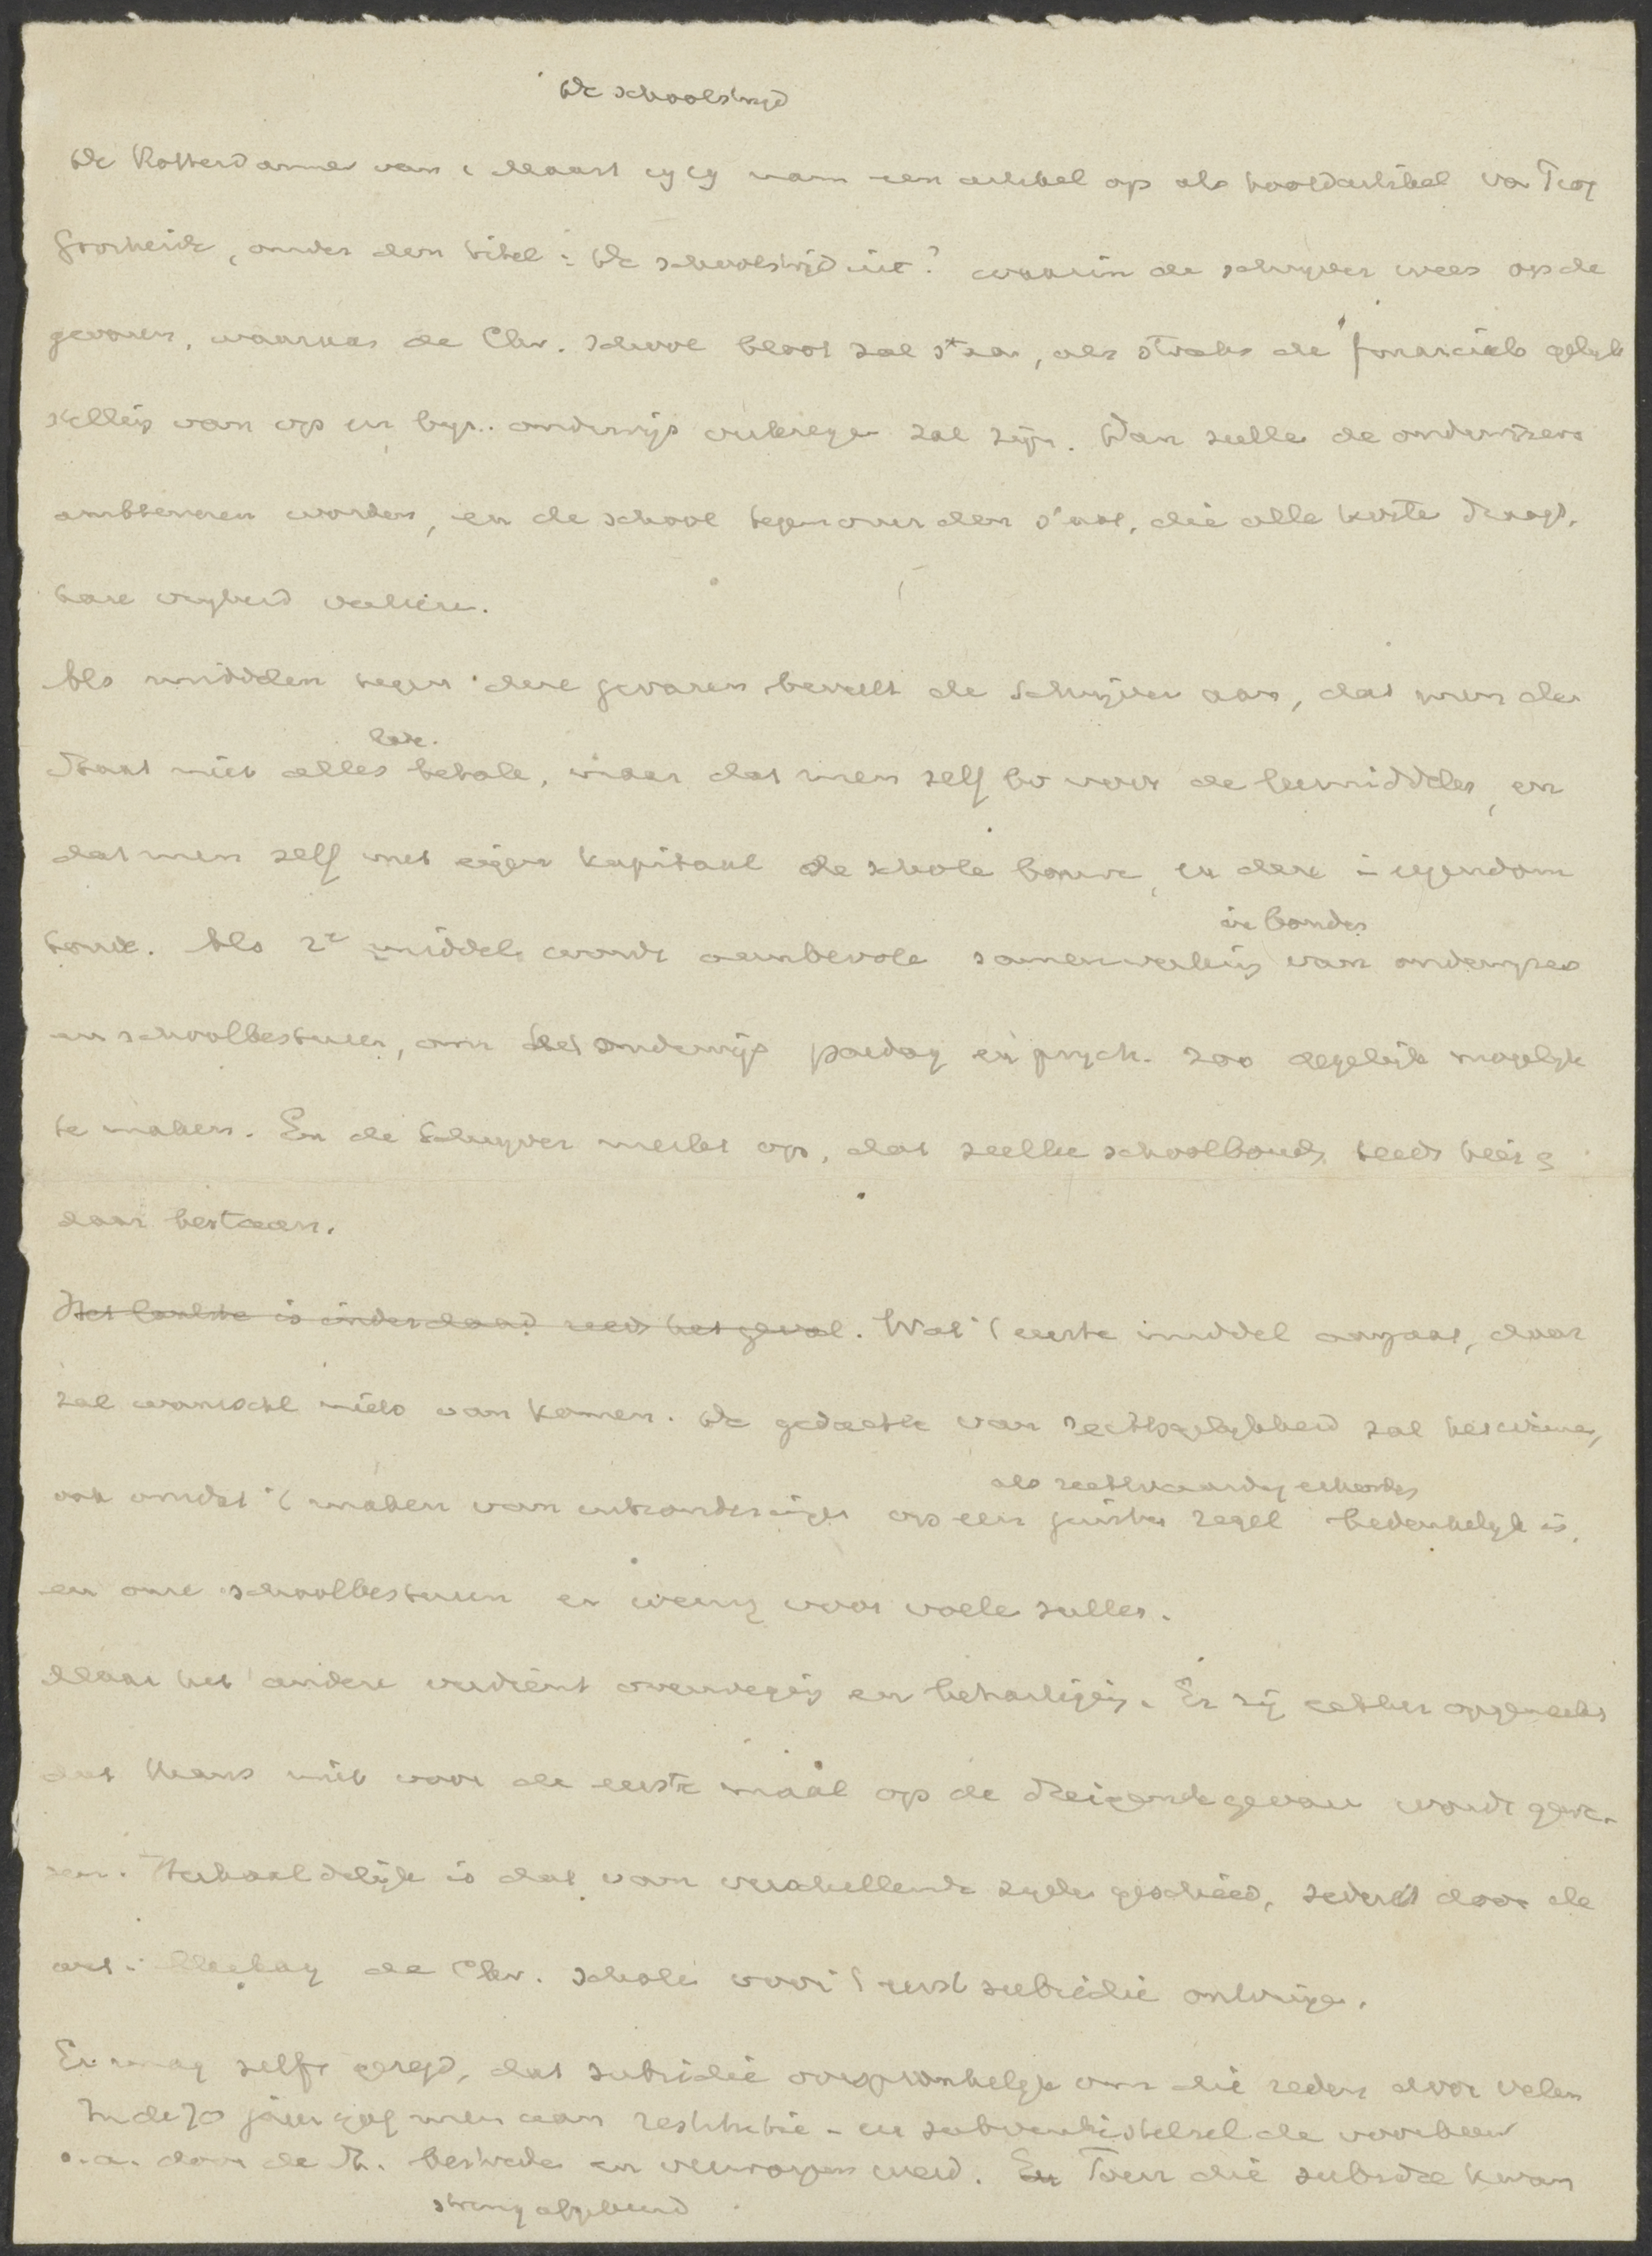 De schoolstrijd
De Rotterdammer van 1 Maart 1919 nam een artikel op als hoofdartikel van
Grosheide, onder den titel: De schoolstrijd uit? waarin de schrijver wees op de
gevaren, waaraan de Chr. School bloot zal staan, als straks de financieele gelijk
stelling van op en byz. onderwijs verkregen zal zijn. Dan zullen de onderwijzers
ambtenaren worden, en de school tegenover den Staat, die alle kosten draagt,
hare vrijheid verliezen.
Als middelen tegen deze gevaren beveelt de Schrijver aan, dat men den
late
Staat niet alles betale, maar dat men zelf bv voor de leermiddelen, en
dat men zelf met eigen kapitaal de scholen bouwe, en deze in eigendom
houde. Als 2e middel wordt aanbevolen samenwerking van onderwijzers
in bonden
en schoolbesturen, om het onderwijs paedag en psych. zoo degelijk mogelijk
te maken. En de Schrijver merkt op, dat zulke schoolbonden reeds hier &
daar bestaan.
Het laatste is inderdaad reeds het geval. Wat 't eerste middel aangaat, daar
zal wanrschl niets van komen. De gedachte van rechtsgelijkheid zal het winnen,
als rechtvaardig erkenden
ook omdat 't maken van uitzonderingen op een juisten regel bedenkelijk is,
en onze schoolbesturen er weinig voor voelen zullen.
Maar het andere verdient overweging en behartiging. Er zij echter opgemerkt
dat thans niet voor de eerste maal op de dreigende gevaren wordt gewe-
zen. Herhaaldelijk is dat van verschillende zijden geschied, sedert door de
wet-Mackay de Chr. scholen voor 't eerst subsidie ontvingen.
Er mag zelfs gezegd, dat subsidie oorspronkelijk om die reden door velen
In de 70 jaren gaf men aan restitutie- en subventiestelsel de voorkeur
o.a. door de St. bestreden en verworpen werd. En Toen die subsidie kwam
streng afgekeurd